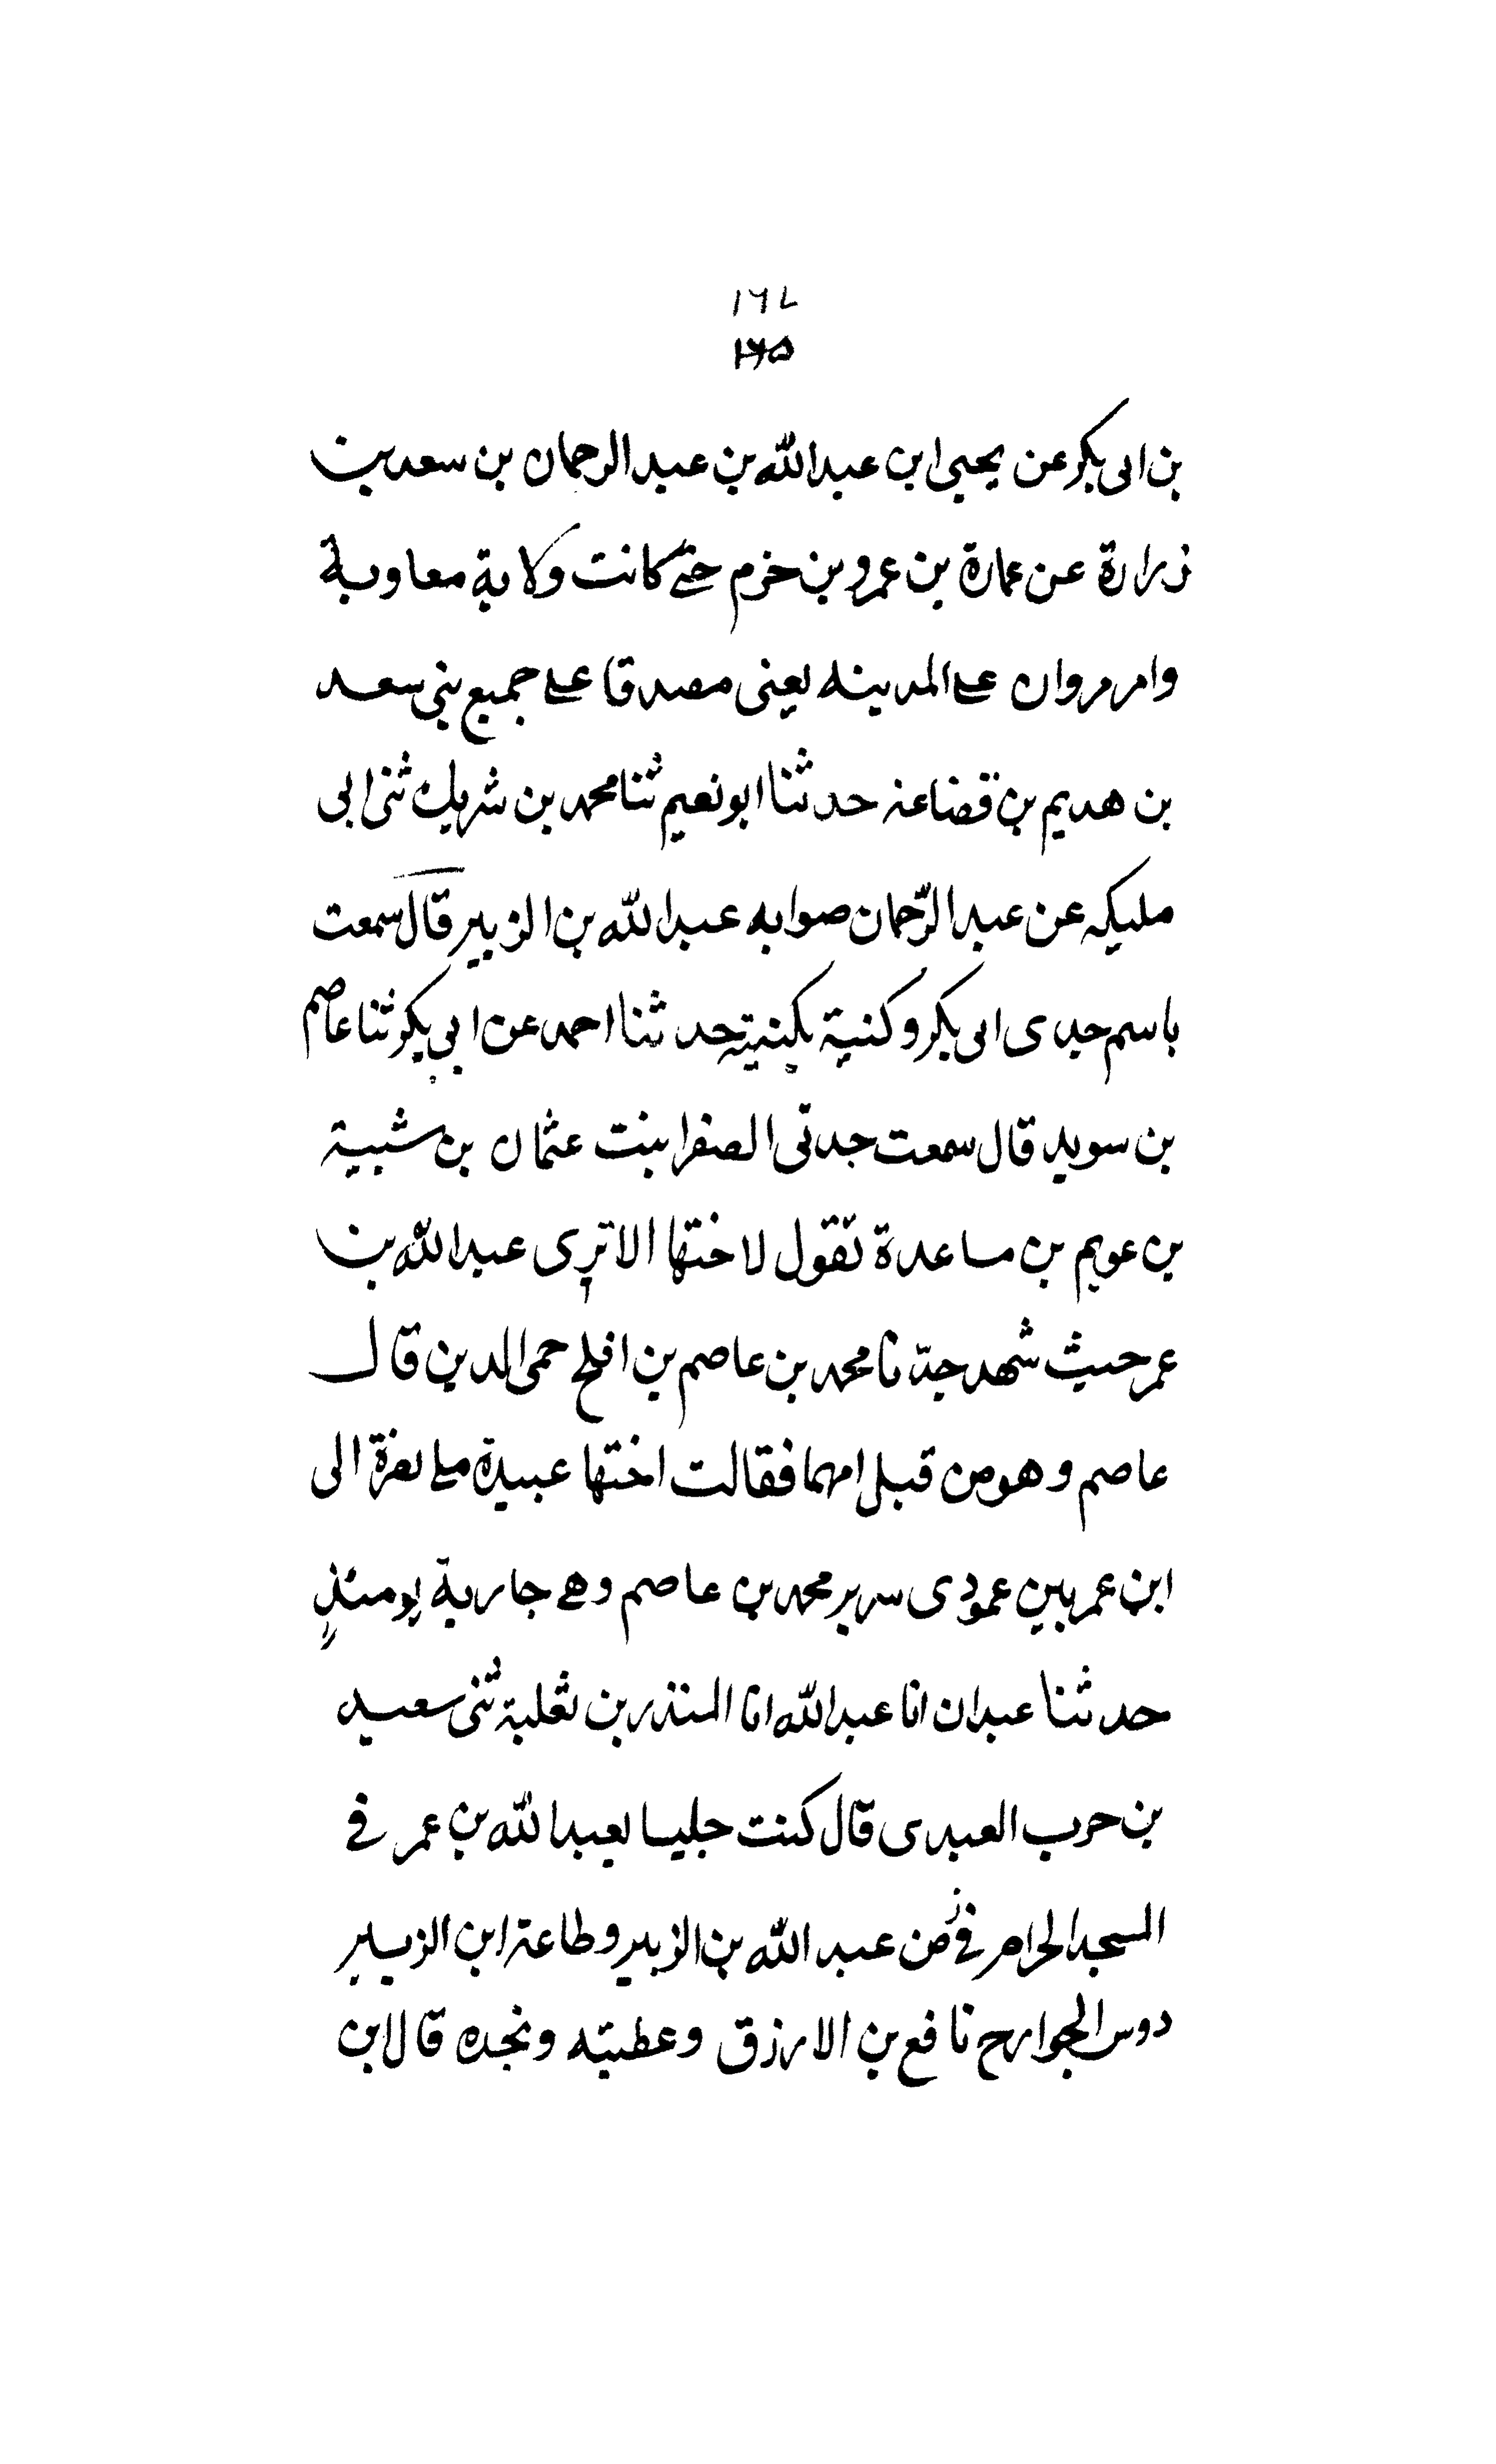 ١٦٧
١٦٥
بن ابى بكر عن يحيى ابن عبدالله بن عبد الرحمان بن سعد بن
زرارة عن عمارة بن عمرو بن خزم حتے كانت ولاية معاوية
وامر مروان علے المدينه يعنى مصدقا علے جميع بنى سعد
بن هديم بن قضاعه حدثنا ابو نعيم ثنا محمد بن شريك ثنى ابى
مليكه عن عبد الرّحمان صوابه عبدالله بن الزبير قال سمعت
باسم جدى ابى بكر وكنية بكنيته حدثنا احمد عن ابى بكر ثنا عاصم
بن سويد قال سمعت جدتى الصفرا بنت عثمان بن شبية
بن عويم بن ساعدة تقول لاختها الا ترى عبدالله بن
عمر حيث شهد جدّنا محمد بن عاصم بن افلح حمى الدين قال
عاصم وهو من قبل امهما فقالت اختها عبيدة ملے بعزة الى
ابن عمر بين عمودى سرير محمد بن عاصم وهے جارية يومئذٍ
حدثنا عبدان انا عبدالله انا المنذر بن ثعلبة ثنى سعيد
بن حرب العبدى قال كنت جليسا لعبدالله بن عمر فى
المسجد الحرام فى زمن عبد الله بن الزبير وطاعة ابن الزبير
دوس الجوارح نافع بن الارزق وعطيته ونجده قال ابن